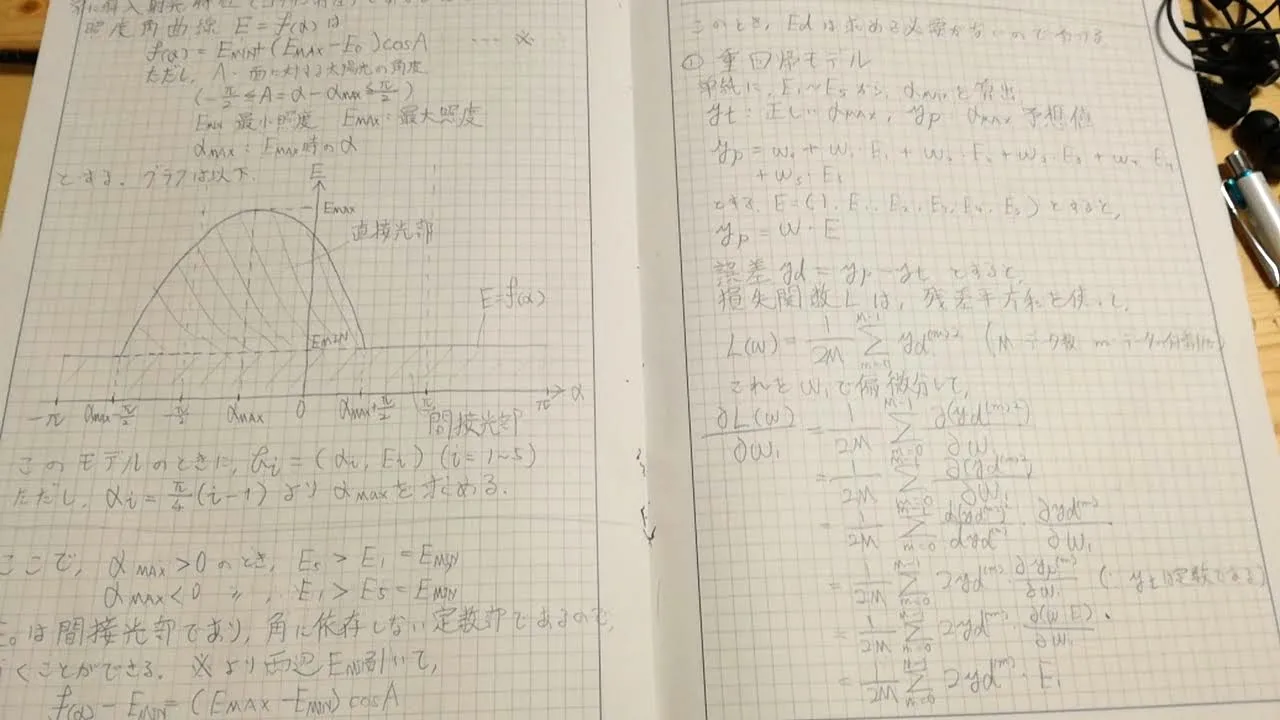 照度角曲線 E=f(α)は
f(α) = EMIN + (EMAX-E0)cosA ……※
ただし, A: 面に対する太陽光の角度
(-π/2 ≦ A = α - αMAX ≦ π/2)
EMIN: 最小照度 EMAX: 最大照度
αMAX: EMAX時のα
とする. グラフは以下.
E
EMAX
直接光部
E=f(α)
EMIN
-π αMAX-π/2 -π/2 αMAX 0 αMAX+π/2 π/2 π α
間接光部
このモデルのときに, =(αi, Ei) (i=1~5)
ただし, αi = π/4(i-1) より αMAXを求める.
ここで, αMAX>0 のとき, E5 > E1 = EMIN
αMAX<0 〃, E1 > E5 = EMIN
E0は間接光部であり, 角に依存しない定数部であるので,
引くことができる. ※より両辺EMIN引いて,
f(α) - EMIN = (EMAX - EMIN)cosA
このとき, Edは求める必要がないので
① 重回帰モデル
単純に, E1~E5から, αMAXを算出
yt: 正しいαMAX, yp: αMAX予想値
yp = w0 + w1・E1 + w2・E2 + w3・E3 + w4・E4
+ w5・E5
とする. E=(1, E1, E2, E3, E4, E5) とすると,
yp = w・E
誤差 yd = yp - yt とすると,
損失関数Lは, 残差平方和を使って,
L(w) = 1/2M Σ[m=0, M-1] yd^(m)2 (M: データ数 m: データの)
これをw1で偏微分して,
∂L(w)/∂w1 = 1/2M Σ[m=0, M-1] ∂(yd^(m)2)/∂w1
= 1/2M Σ[m=0, M-1] ∂(yd^(m))2/∂w1
= 1/2M Σ[m=0, M-1] d(yd^(m))2/dyd^(m)・∂yd^(m)/∂w1
= 1/2M Σ[m=0, M-1] 2yd^(m)・∂yp^(m)/∂w1 (∵ytは定数である)
= 1/2M Σ[m=0, M-1] 2yd^(m)・∂(w・E)/∂w1
= 1/2M Σ[m=0, M-1] 2yd^(m)・E1